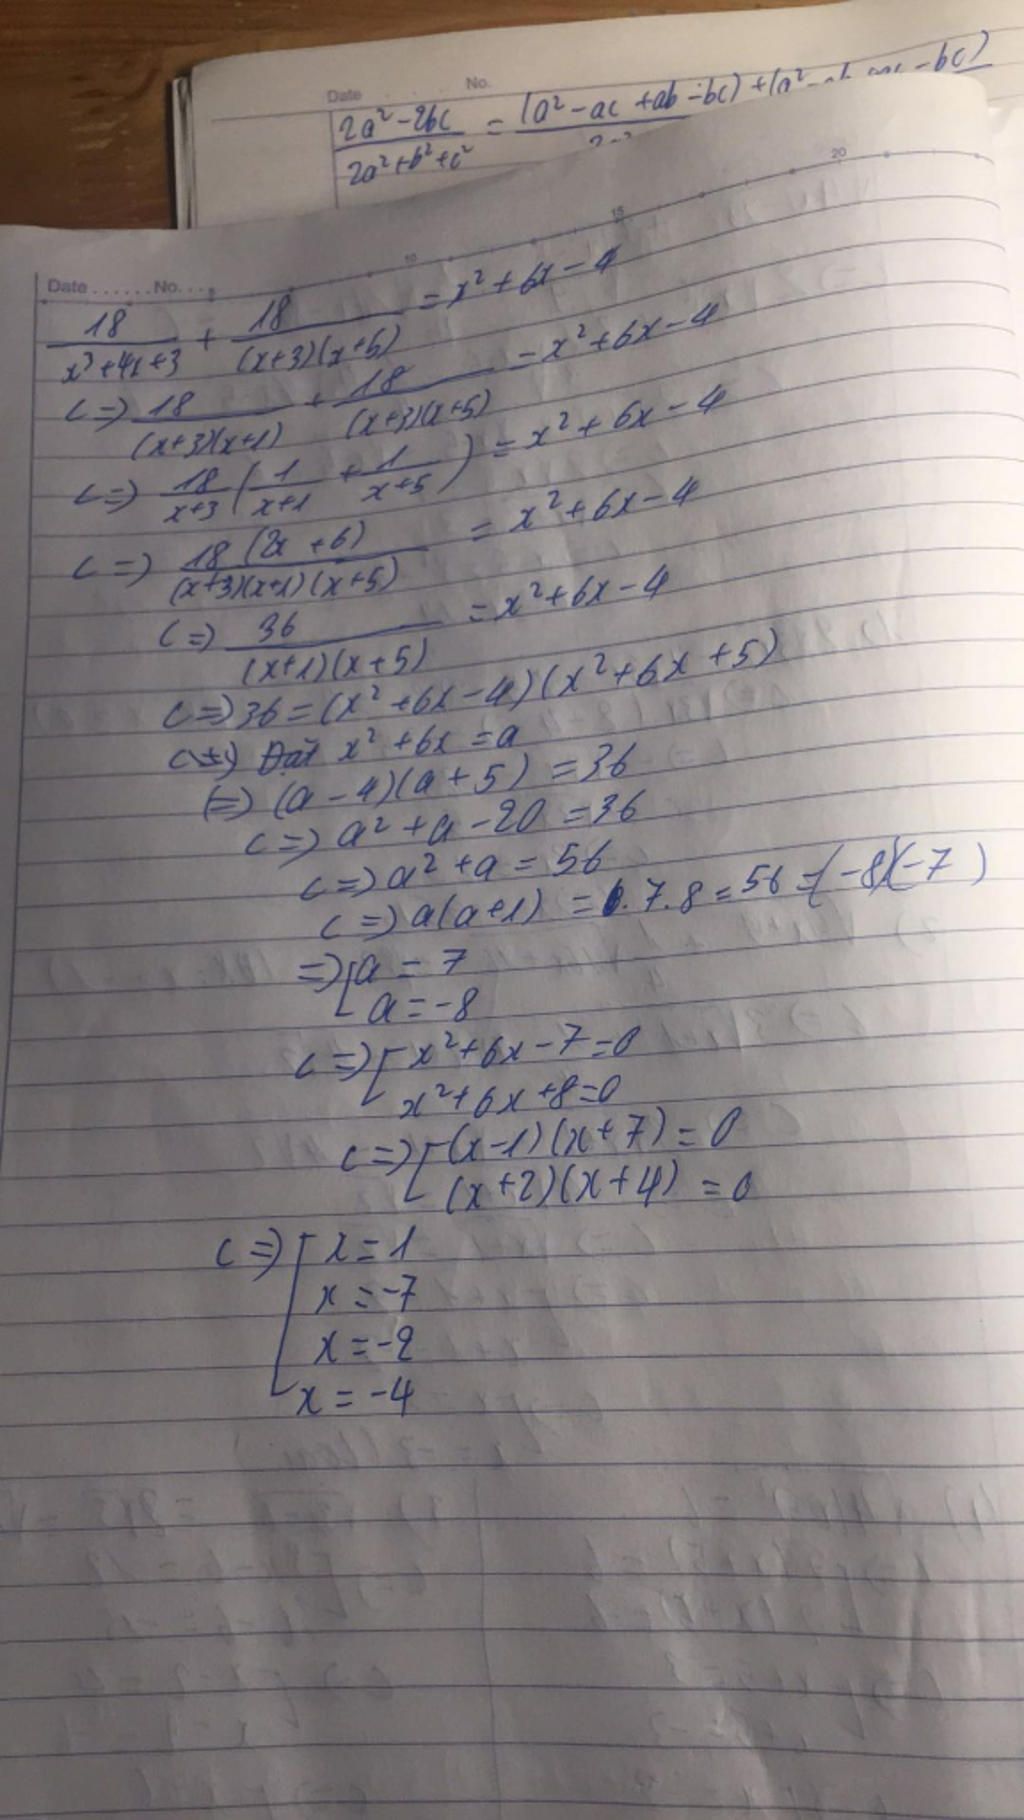 Date No.
2a² - 2bc / 2a² + b² + c² = (a² - ac + ab - bc) + (a² - ab - bc)
20
15
10
5
Date ...... No. ...
18/(x² + 4x + 3) + 18/((x+3)(x+5)) = x² + 6x - 4
<=> 18/((x+3)(x+1)) + 18/((x+3)(x+5)) = x² + 6x - 4
<=> 18/(x+3) (1/(x+1) + 1/(x+5)) = x² + 6x - 4
<=> 18(2x + 6)/((x+3)(x+1)(x+5)) = x² + 6x - 4
<=> 36/((x+1)(x+5)) = x² + 6x - 4
<=> 36 = (x² + 6x - 4)(x² + 6x + 5)
Đặt x² + 6x = a
<=> (a - 4)(a + 5) = 36
<=> a² + a - 20 = 36
<=> a² + a = 56
<=> a(a+1) = 7.8 = 56 = (-8)(-7)
=> [a = 7
a = -8
<=> [x² + 6x - 7 = 0
x² + 6x + 8 = 0
<=> [(x-1)(x+7) = 0
(x+2)(x+4) = 0
<=> [x = 1
x = -7
x = -2
x = -4